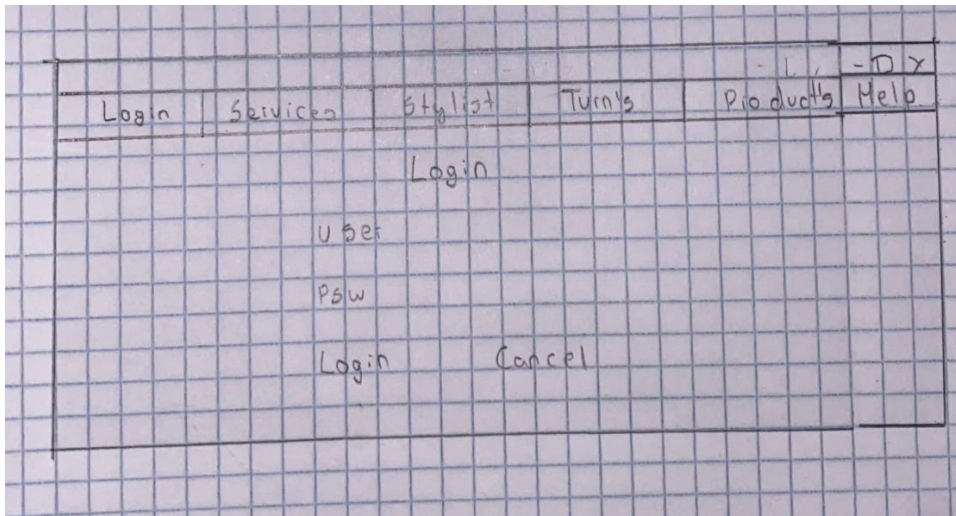 - □ X
Login Services Stylist Turn's Product's Help
Login
User
Psw
Login Cancel